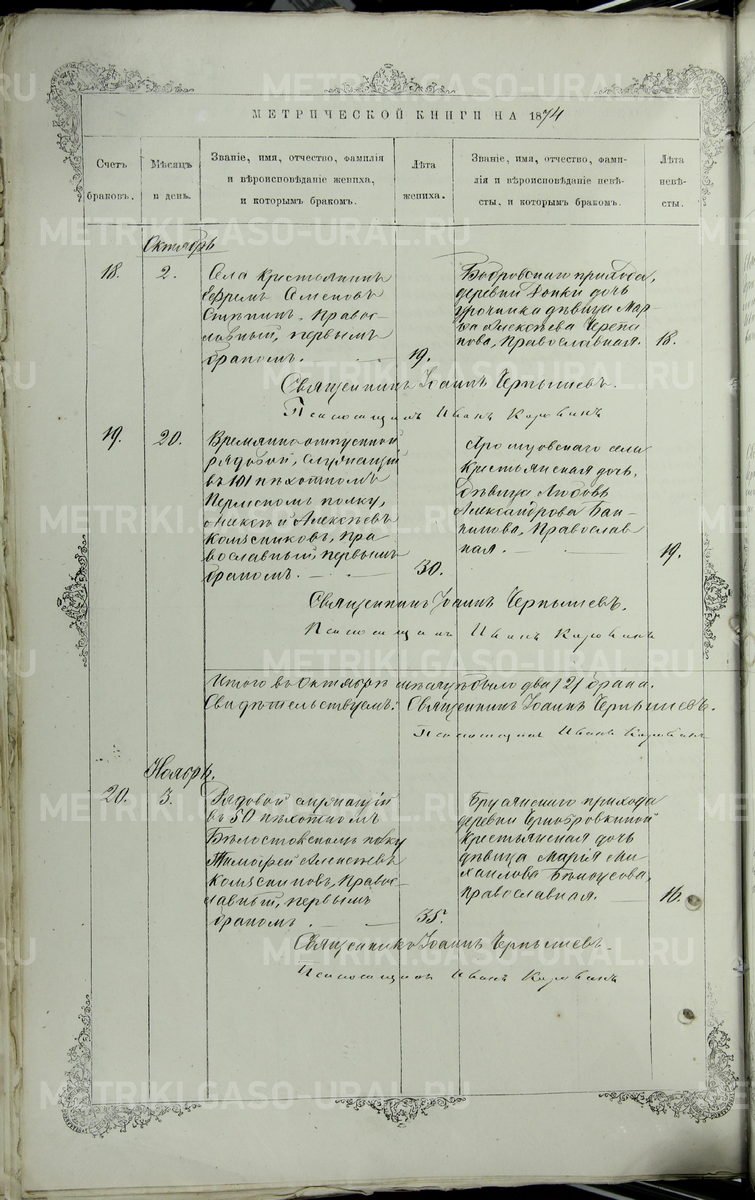 МЕТРИЧЕСКОЙ КНИГИ НА 1874
Счетъ браковъ.
Мѣсяцъ и день.
Званіе, имя, отчество, фамилія
и вѣроисповѣданіе жениха,
и которымъ бракомъ.
Лѣта жениха.
Званіе, имя, отчество, фами-
лія и вѣроисповѣданіе невѣ-
сты, и которымъ бракомъ.
Лѣта невѣ-
сты.
Октябрь
18. 2.
Села крестьянинъ
Ефремъ Семеновъ
православный, первымъ
бракомъ. 19.
Бобровскаго прихода,
деревни дочь
урочника дѣвица Мар-
ѳа Алексѣева Черепа
нова, Православная. 18.
Священникъ Іоаннъ Чернышевъ.
Псаломщикъ Иванъ Коровинъ
19. 20.
Временно-отпускной
рядовой, служащій
въ 101 пѣхотномъ
Пермскомъ полку,
Алексѣевъ
Колясниковъ, пра
вославный, первымъ
бракомъ. 30.
села
Крестьянская дочь,
дѣвица Любовь
Александрова
Православ
ная. 19.
Священникъ Іоаннъ Чернышевъ.
Псаломщикъ Иванъ Коровинъ
Итого въ Октябрѣ мѣсяцѣ было два /2/ брака.
Свидѣтельствуемъ: Священникъ Іоаннъ Чернышевъ.
Псаломщикъ Иванъ Коровинъ
Ноябрь.
20. 3.
Рядовой служащій
въ 50 пѣхотномъ
Бѣлостокскомъ полку
Тимофей Алексѣевъ
Колясниковъ, Право-
славный, первымъ
бракомъ 35.
Бруснянскаго прихода
деревни
Крестьянская дочь
дѣвица Марія Ми
хаилова Бѣлоусова,
Православная. 16.
Священникъ Іоаннъ Чернышевъ.
Псаломщикъ Иванъ Коровинъ
METRIKI.GASO-URAL.RU